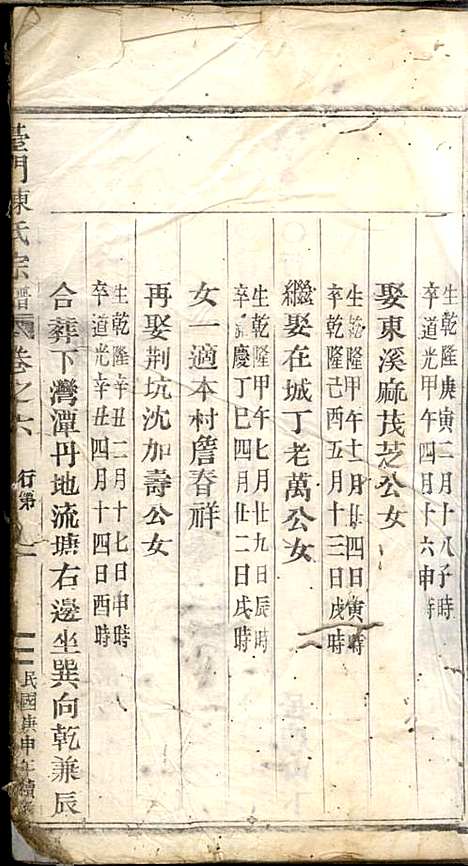 生乾隆庚寅二月十八子時
卒道光甲午四月十六申時
娶東溪麻茂芝公女
生乾隆甲午十一月廿四日寅時
卒乾隆己酉五月十三日戌時
繼娶在城丁老萬公女
生乾隆甲午七月廿九日辰時
卒嘉慶丁巳四月廿二日戌時
女一適本村詹春祥
再娶荆坑沈加壽公女
生乾隆辛丑二月十七日申時
卒道光辛丑四月十四日酉時
合葬下灣潭丹地流塘右邊坐巽向乾兼辰
臺門陳氏宗譜 卷之六 行第 民國庚申年續修